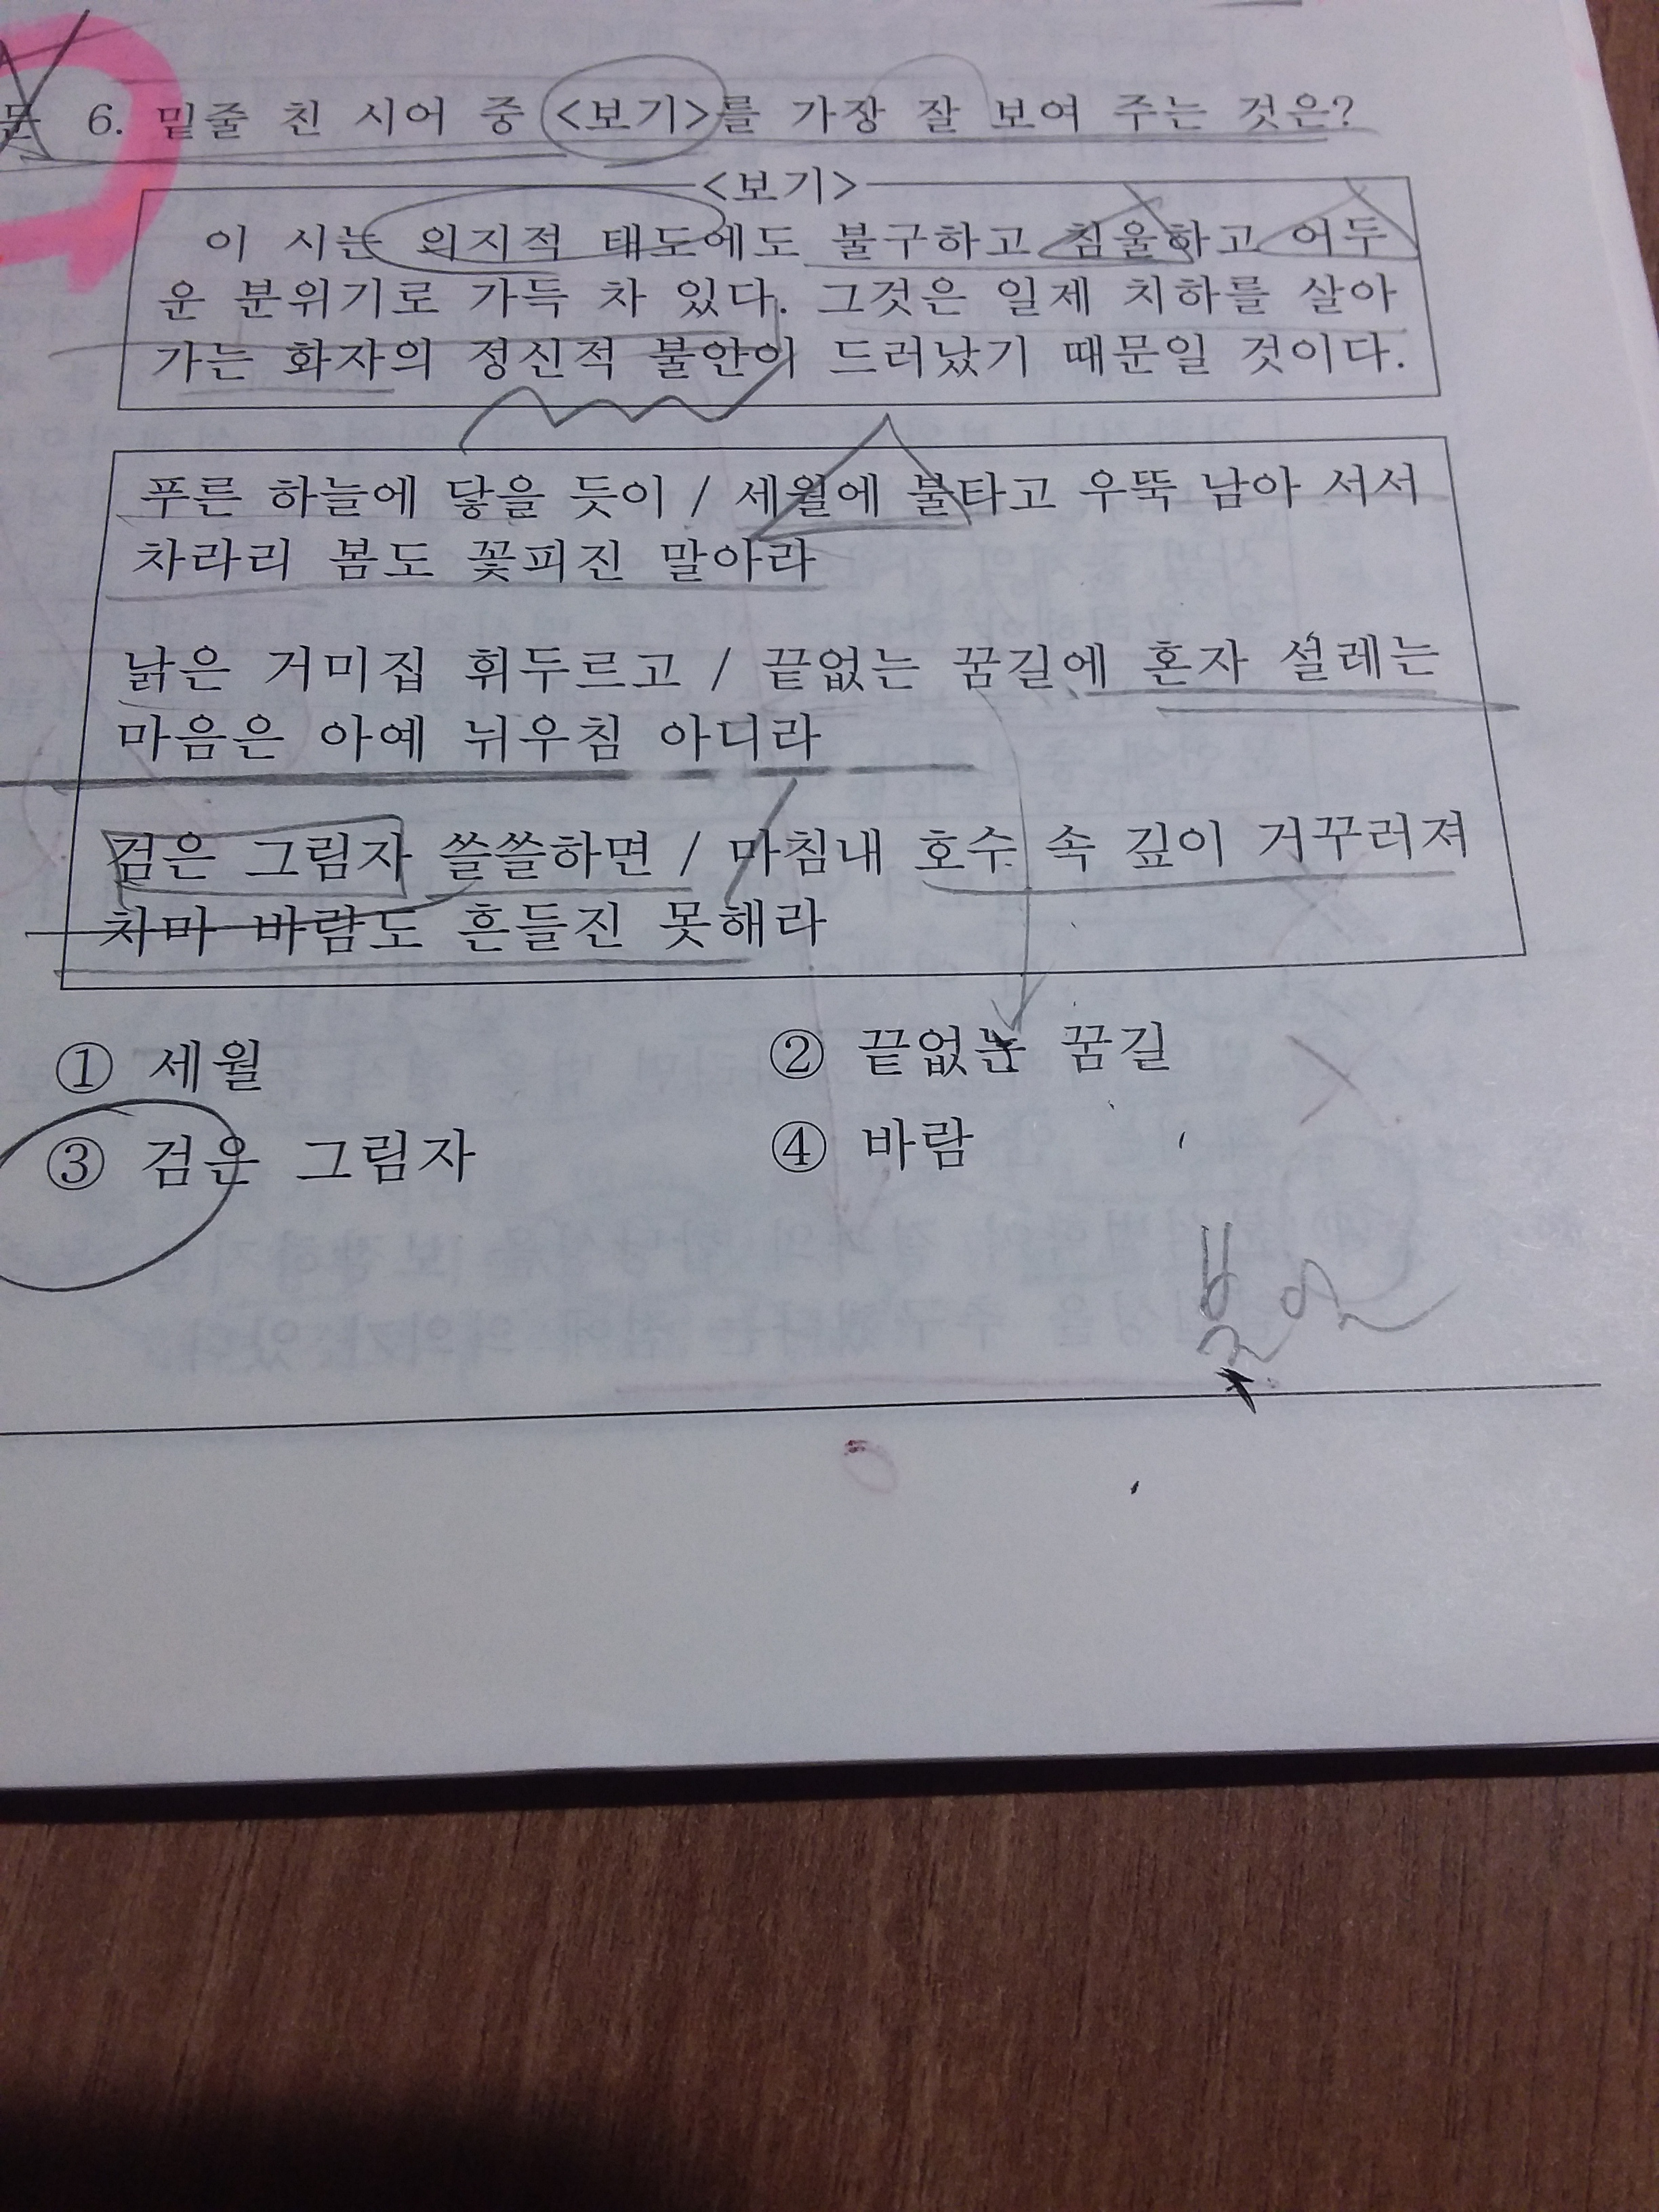 문 6. 밑줄 친 시어 중 <보기>를 가장 잘 보여 주는 것은?
<보기>
이 시는 의지적 태도에도 불구하고 침울하고 어두
운 분위기로 가득 차 있다. 그것은 일제 치하를 살아
가는 화자의 정신적 불안이 드러났기 때문일 것이다.
푸른 하늘에 닿을 듯이 / 세월에 불타고 우뚝 남아 서서
차라리 봄도 꽃피진 말아라
낡은 거미집 휘두르고 / 끝없는 꿈길에 혼자 설레는
마음은 아예 뉘우침 아니라
검은 그림자 쓸쓸하면 / 마침내 호수 속 깊이 거꾸러져
차마 바람도 흔들진 못해라
① 세월 ② 끝없는 꿈길
③ 검은 그림자 ④ 바람